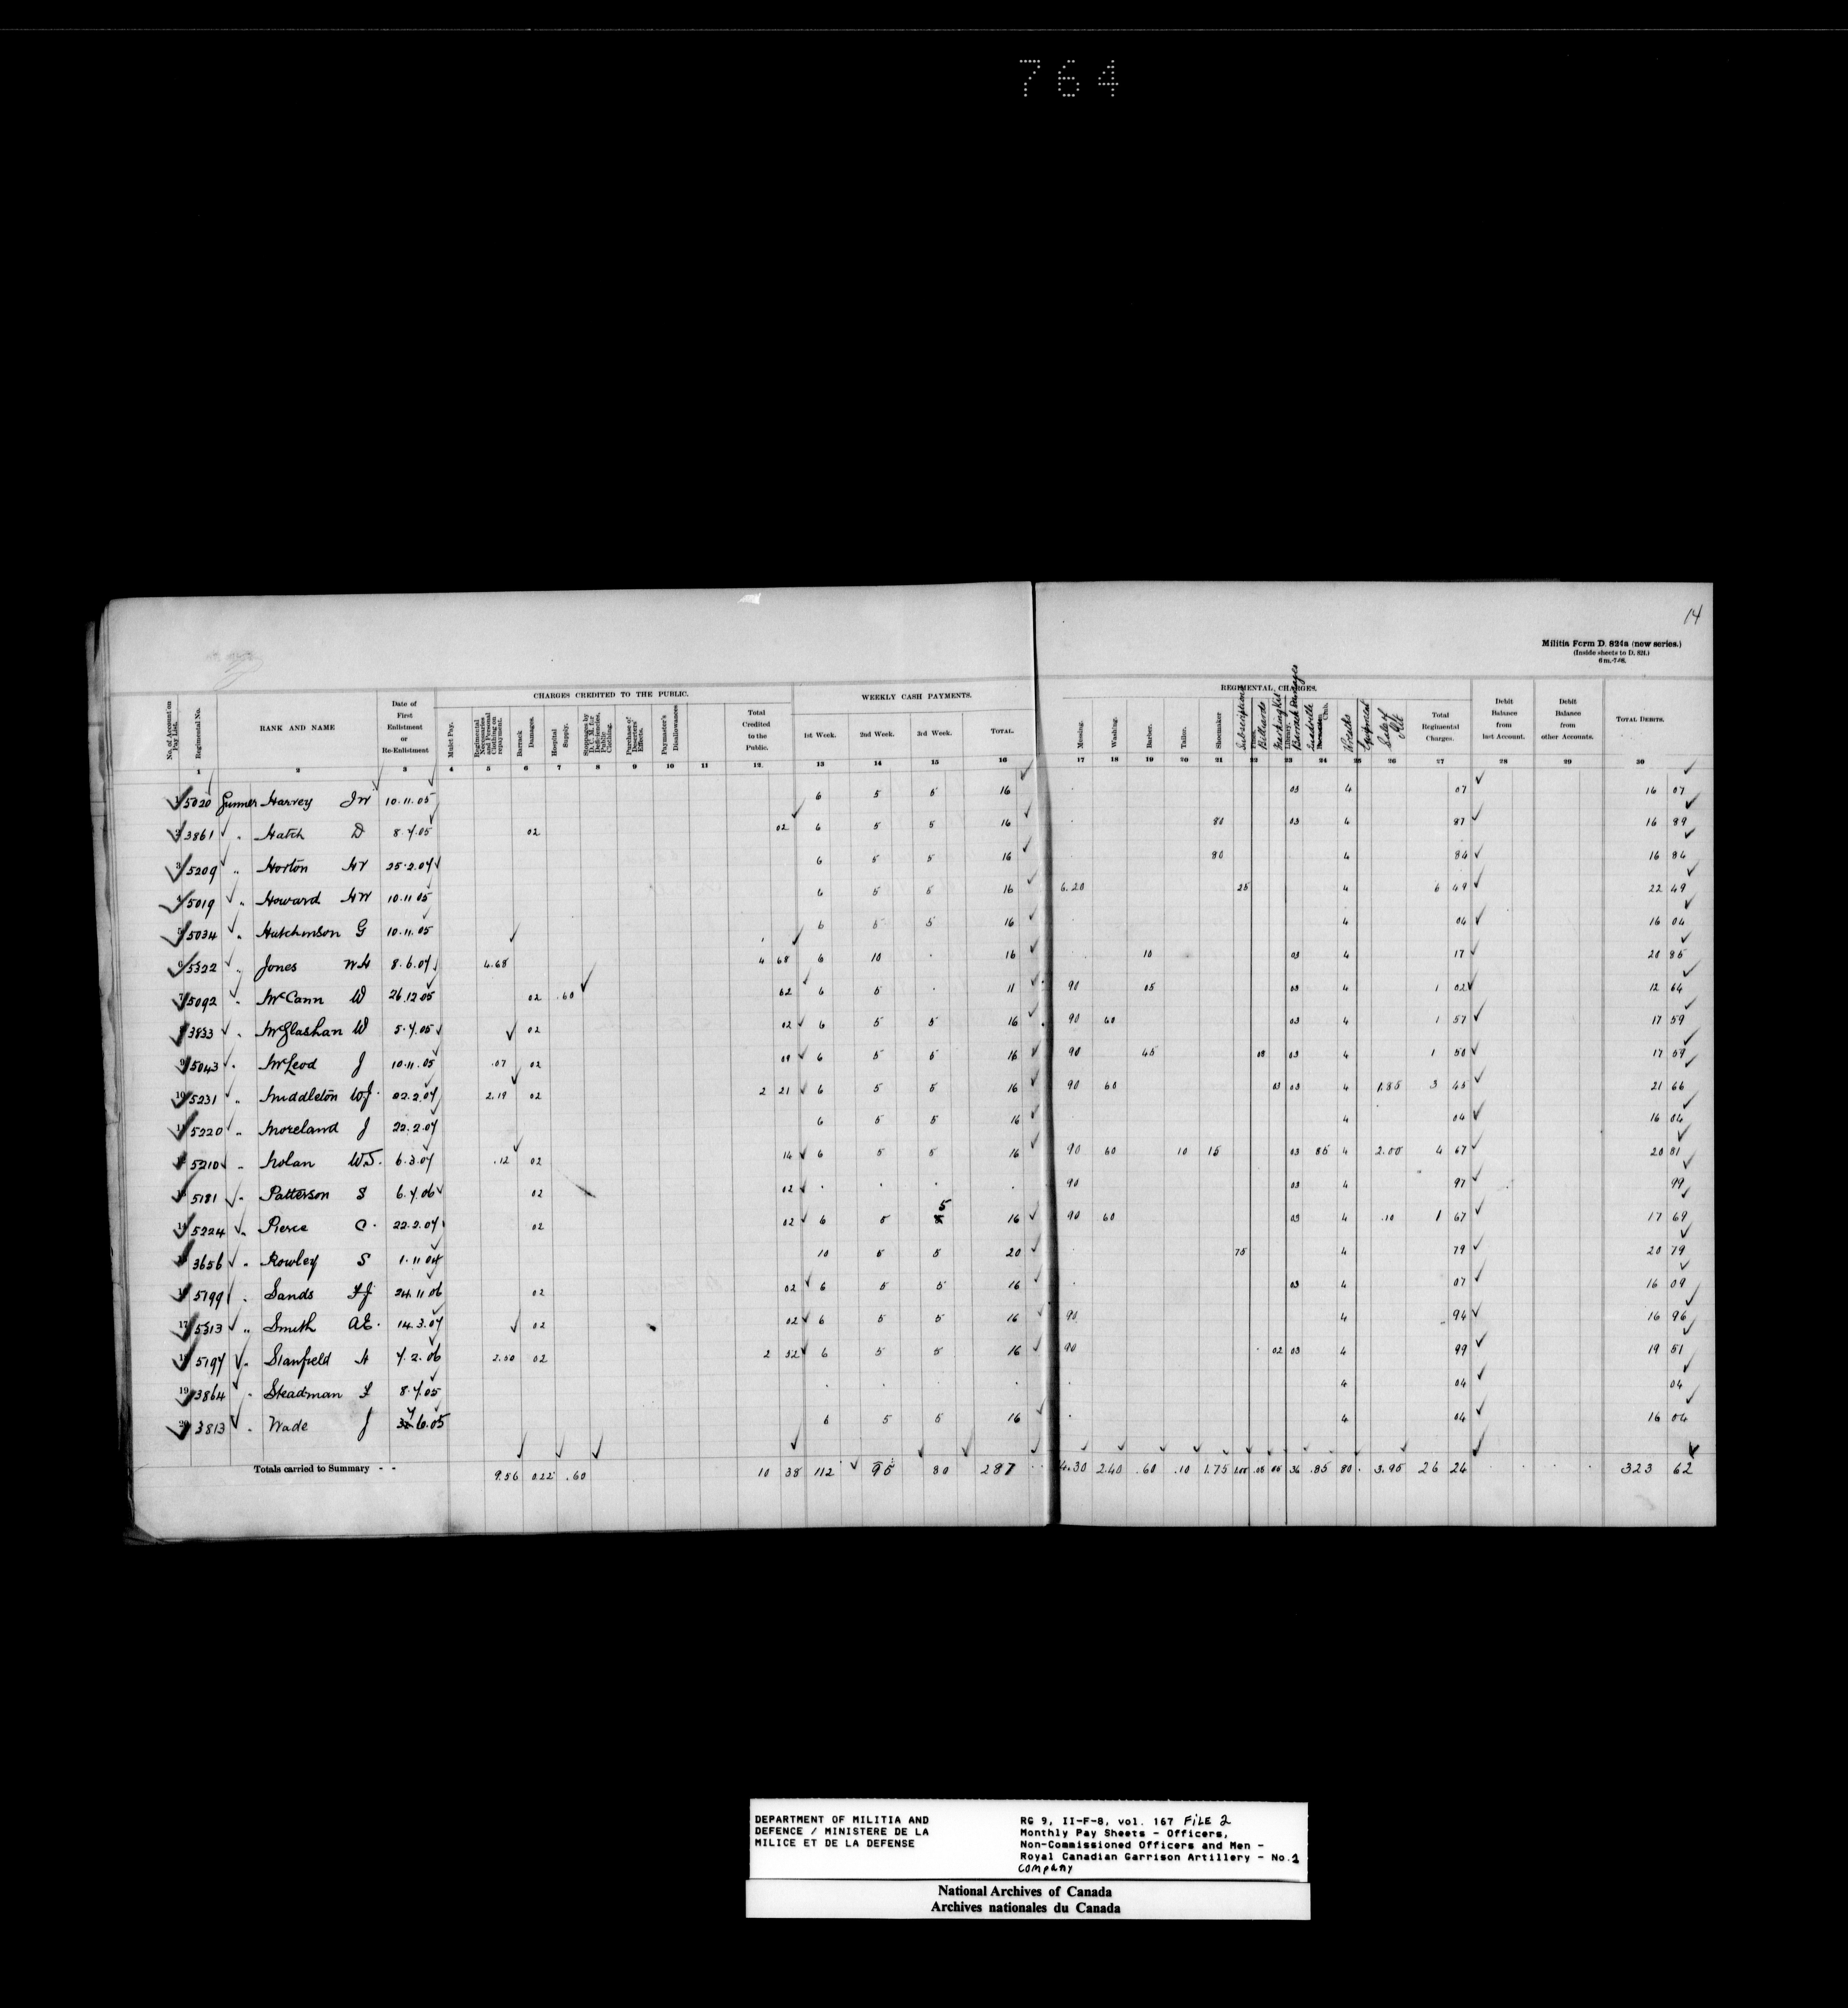 764
14
Militia Form D. 824a (new series.)
(Inside sheets to D. 824.)
CHARGES CREDITED TO THE PUBLIC. WEEKLY CASH PAYMENTS. REGIMENTAL CHARGES.
No. of Account on Pay List. Regimental No. RANK AND NAME Date of First Enlistment or Re-Enlistment Mulct Pay. Regimental Necessaries and Personal Clothing on repayment. Barrack Damages. Hospital Supply. Stoppages by D.C.M. for Deficiencies, Public Clothing. Purchase of Deserters' Effects. Paymaster's Disallowances Total Credited to the Public. 1st Week. 2nd Week. 3rd Week. TOTAL. Messing. Washing. Barber. Tailor. Shoemaker Subscriptions Billiards Barrack Damages Club. Total Regimental Charges. Debit Balance from last Account. Debit Balance from other Accounts. TOTAL DEBITS.
1 2 3 4 5 6 7 8 9 10 11 12. 13 14 15 16 17 18 19 20 21 22 23 24 25 26 27 28 29 30
1 5020 Gunner Harvey JW 10.11.05 6 5 5 16 03 4 07 16 07
2 3861 " Hatch D 8.7.05 02 02 6 5 5 16 80 03 4 87 16 89
3 5209 " Horton 25.2.07 6 5 5 16 80 4 84 16 84
4 5019 " Howard HW 10.11.05 6 5 5 16 6.20 25 4 6 49 22 49
5 5034 " Hutchinson G 10.11.05 6 5 5 16 4 04 16 04
6 5322 " Jones WH 8.6.07 4.68 4 68 6 10 . 16 10 03 4 17 20 85
7 5092 " McCann W 26.12.05 02 .60 62 6 5 . 11 90 05 03 4 1 02 12 64
8 3833 " McGlashan W 5.7.05 02 02 6 5 5 16 90 60 03 4 1 57 17 59
9 5043 " McLeod J 10.11.05 .07 02 09 6 5 5 16 90 45 08 03 4 1 50 17 59
10 5231 " Middleton WJ. 22.2.07 2.19 02 2 21 6 5 5 16 90 60 03 03 4 1.85 3 45 21 66
11 5220 " Moreland J 22.2.07 6 5 5 16 4 04 16 04
12 5210 " Nolan W.J. 6.3.07 .12 02 14 6 5 5 16 90 60 10 15 03 85 4 2.00 4 67 20 81
13 5181 " Patterson S 6.7.06 02 02 . . . . 90 03 4 97 99
14 5224 " Pierce C. 22.2.07 02 02 6 5 5 16 90 60 03 4 .10 1 67 17 69
15 3656 " Rowley S 1.11.04 10 5 5 20 75 4 79 20 79
16 5199 " Sands FJ 24.11.06 02 02 6 5 5 16 03 4 07 16 09
17 5313 " Smith AE. 14.3.07 02 02 6 5 5 16 90 4 94 16 96
18 5197 " Stanfield H 7.2.06 2.50 02 2 52 6 5 5 16 90 02 03 4 99 19 51
19 3864 " Steadman F 8.7.05 . . . . 4 04 04
20 3813 " Wade J 6.05 6 5 5 16 4 04 16 04
Totals carried to Summary - - 9.56 0.22 .60 10 38 112 95 80 287 14.30 2.40 .60 .10 1.75 1.00 .08 05 36 .85 80 3.95 26 24 323 62
DEPARTMENT OF MILITIA AND
DEFENCE / MINISTERE DE LA
MILICE ET DE LA DEFENSE
RG 9, II-F-8, vol. 167 FILE 2
Monthly Pay Sheets - Officers,
Non-Commissioned Officers and Men -
Royal Canadian Garrison Artillery - No.1
COMPANY
National Archives of Canada
Archives nationales du Canada